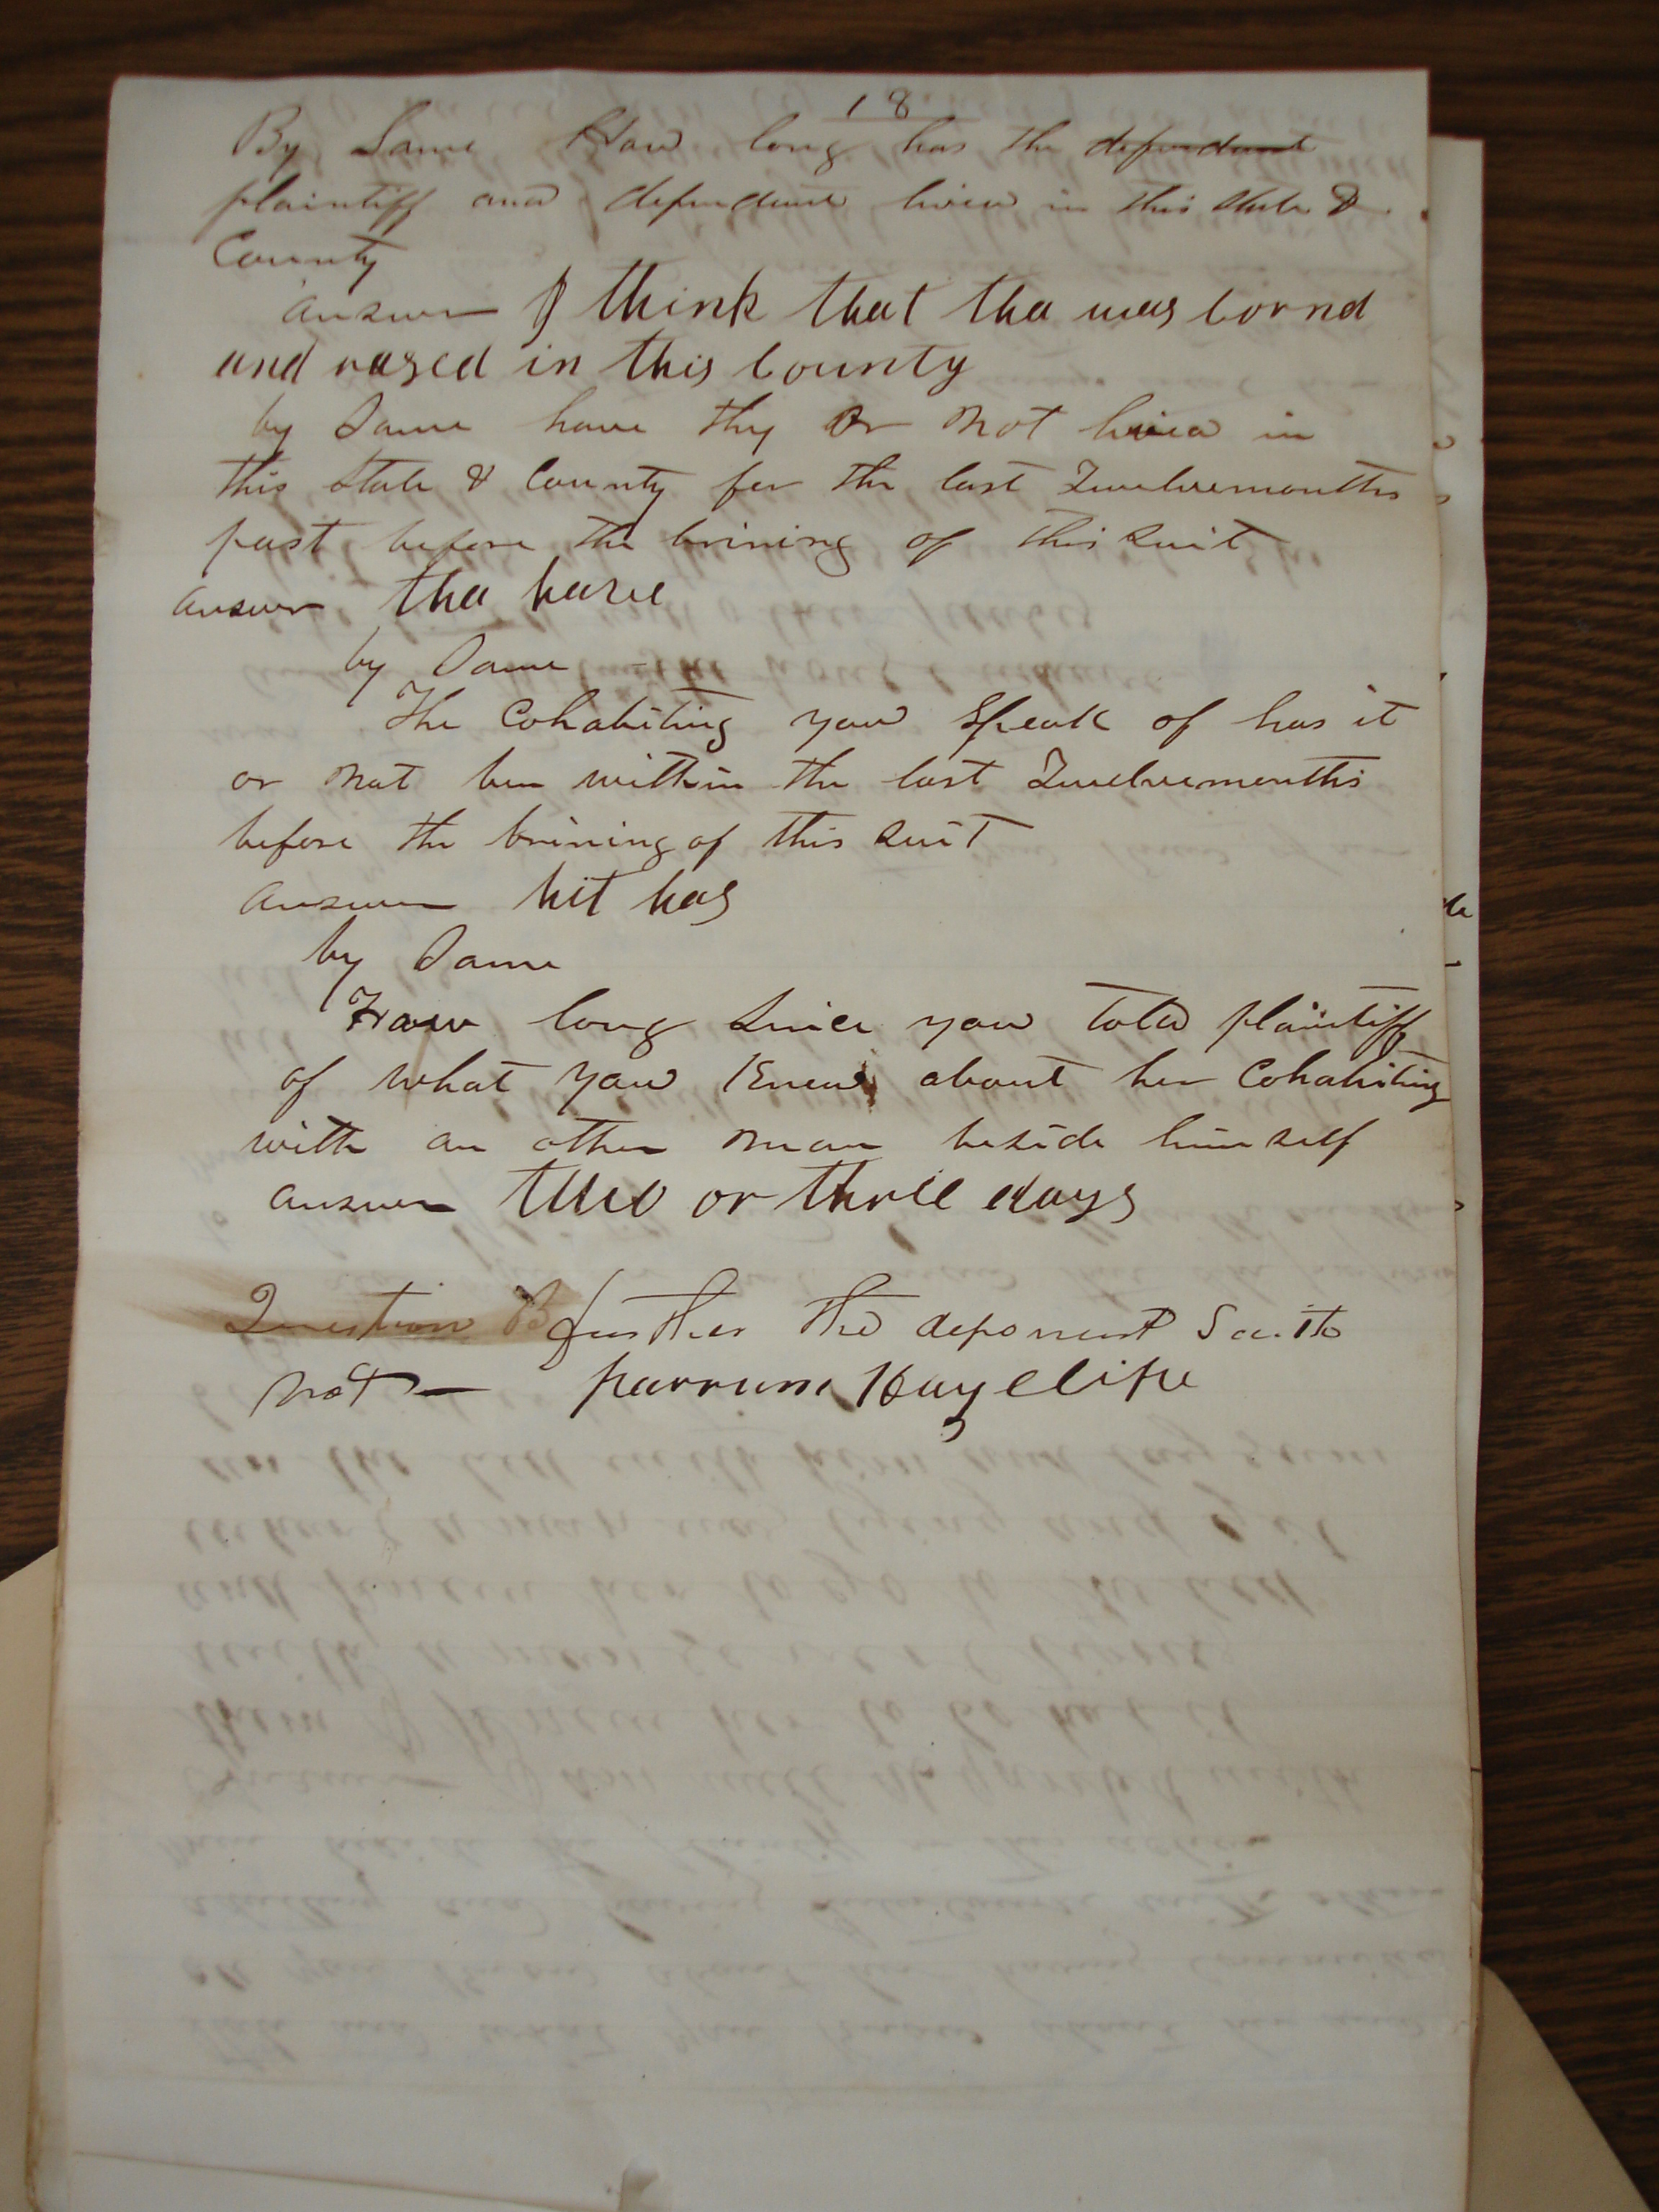 18
By Same How long has the defendant
plaintiff and defendant lived in this State &
County
answer I think that tha was bornd
and rased in this County
by Same have thy or not lived in
this State & County for the last Twelvemonths
past before the brining of this Suit
answer tha have
by Same
The Cohabiting you Speak of has it
or not ben within the last Twelvemonths
before the brining of this Suit
answer hit has
by Same
How long Since you told plaintiff
of what you Knew about her Cohabiting
with an other man beside himself
answer two or three days
Question B further the deponent Saith
not